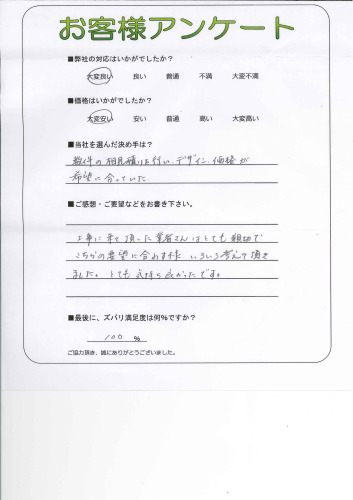 お客様アンケート
■弊社の対応はいかがでしたか?
大変良い 良い 普通 不満 大変不満
■価格はいかがでしたか?
大変安い 安い 普通 高い 大変高い
■当社を選んだ決め手は?
数件の相見積りを行い、デザイン、価格が
希望に合っていた。
■ご感想・ご要望などをお書き下さい。
工事に来て頂いた業者さんはとても親切で
こちらの要望に合わす様 いろいろ考えて頂き
ました。とても気持ち良かったです。
■最後に、ズバリ満足度は何%ですか?
100 %
ご協力頂き、誠にありがとうございました。